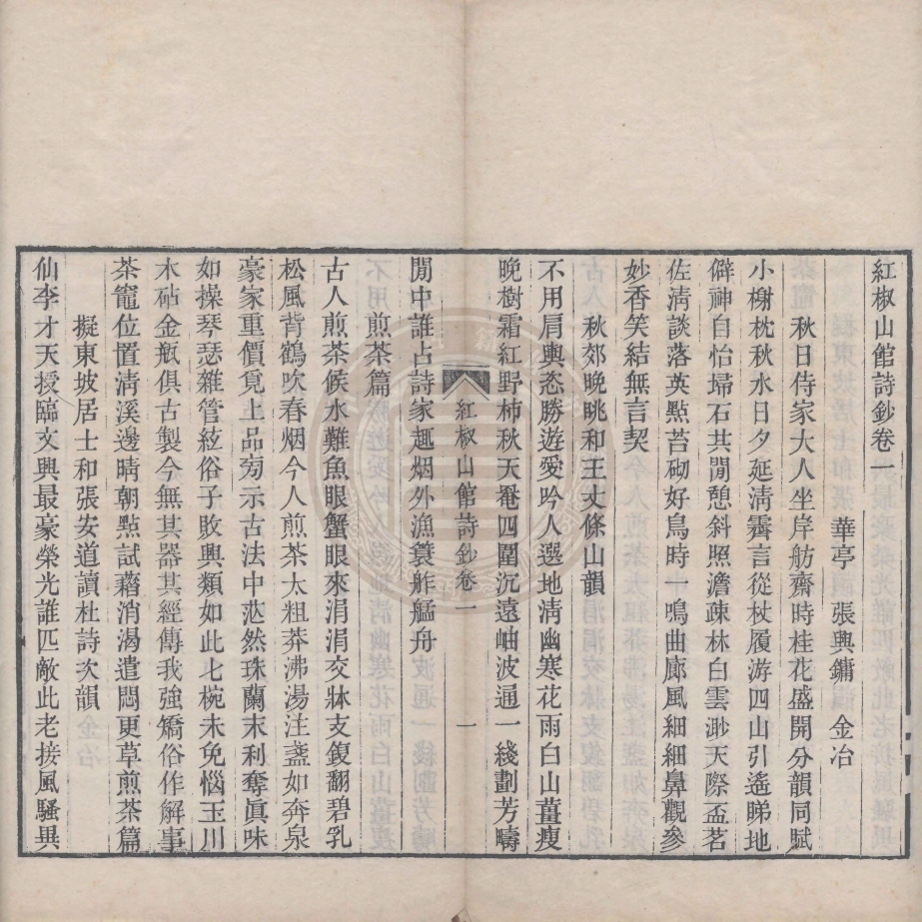 紅椒山館詩鈔卷一
華亭 張興鏞 金冶
秋日侍家大人坐岸舫齋時桂花盛開分韻同賦
小榭枕秋水日夕延清霽言從杖履游四山引遙睇地
僻神自怡埽石共閒憩斜照澹疎林白雲渺天際盃茗
佐清談落英點苔砌好鳥時一鳴曲廊風細細鼻觀參
妙香笑結無言契
秋郊晚眺和王丈條山韻
不用肩輿恣勝遊愛吟人選地清幽寒花雨白山薑瘦
晚樹霜紅野柿秋天菴四圍沉遠岫波通一綫劃芳疇
閒中誰占詩家趣烟外漁蓑舴艋舟
紅椒山館詩鈔卷一 一
煎茶篇
古人煎茶候水難魚眼蟹眼來涓涓交牀支鍑翻碧乳
松風背鶴吹春烟今人煎茶太粗莽沸湯注盞如奔泉
豪家重價覓上品宛示古法中茫然珠蘭末利奪眞味
如操琴瑟雜管絃俗子敗興類如此七椀未免惱玉川
木砧金瓶俱古製今無其器其經傳我強矯俗作解事
茶竈位置清溪邊晴朝點試藉消渴遣悶更草煎茶篇
擬東坡居士和張安道讀杜詩次韻
仙李才天授臨文興最豪榮光誰匹敵此老接風騷異